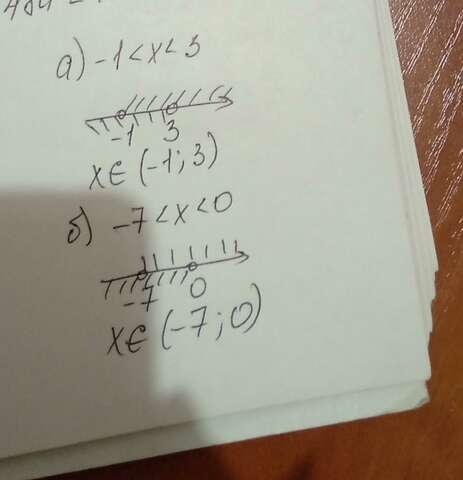 а) -1 < x < 3
-1 3
x ∈ (-1; 3)
б) -7 < x < 0
-7 0
x ∈ (-7; 0)